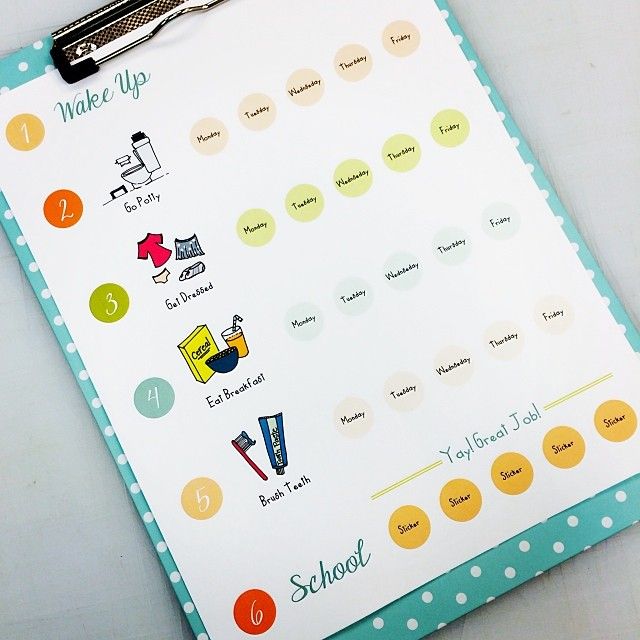 1 Wake Up
2 Go Potty Monday Tuesday Wednesday Thursday Friday
3 Get Dressed Monday Tuesday Wednesday Thursday Friday
Cereal
4 Eat Breakfast Monday Tuesday Wednesday Thursday Friday
Tooth Paste
5 Brush Teeth Monday Tuesday Wednesday Thursday Friday
Yay! Great Job!
6 School Sticker Sticker Sticker Sticker Sticker